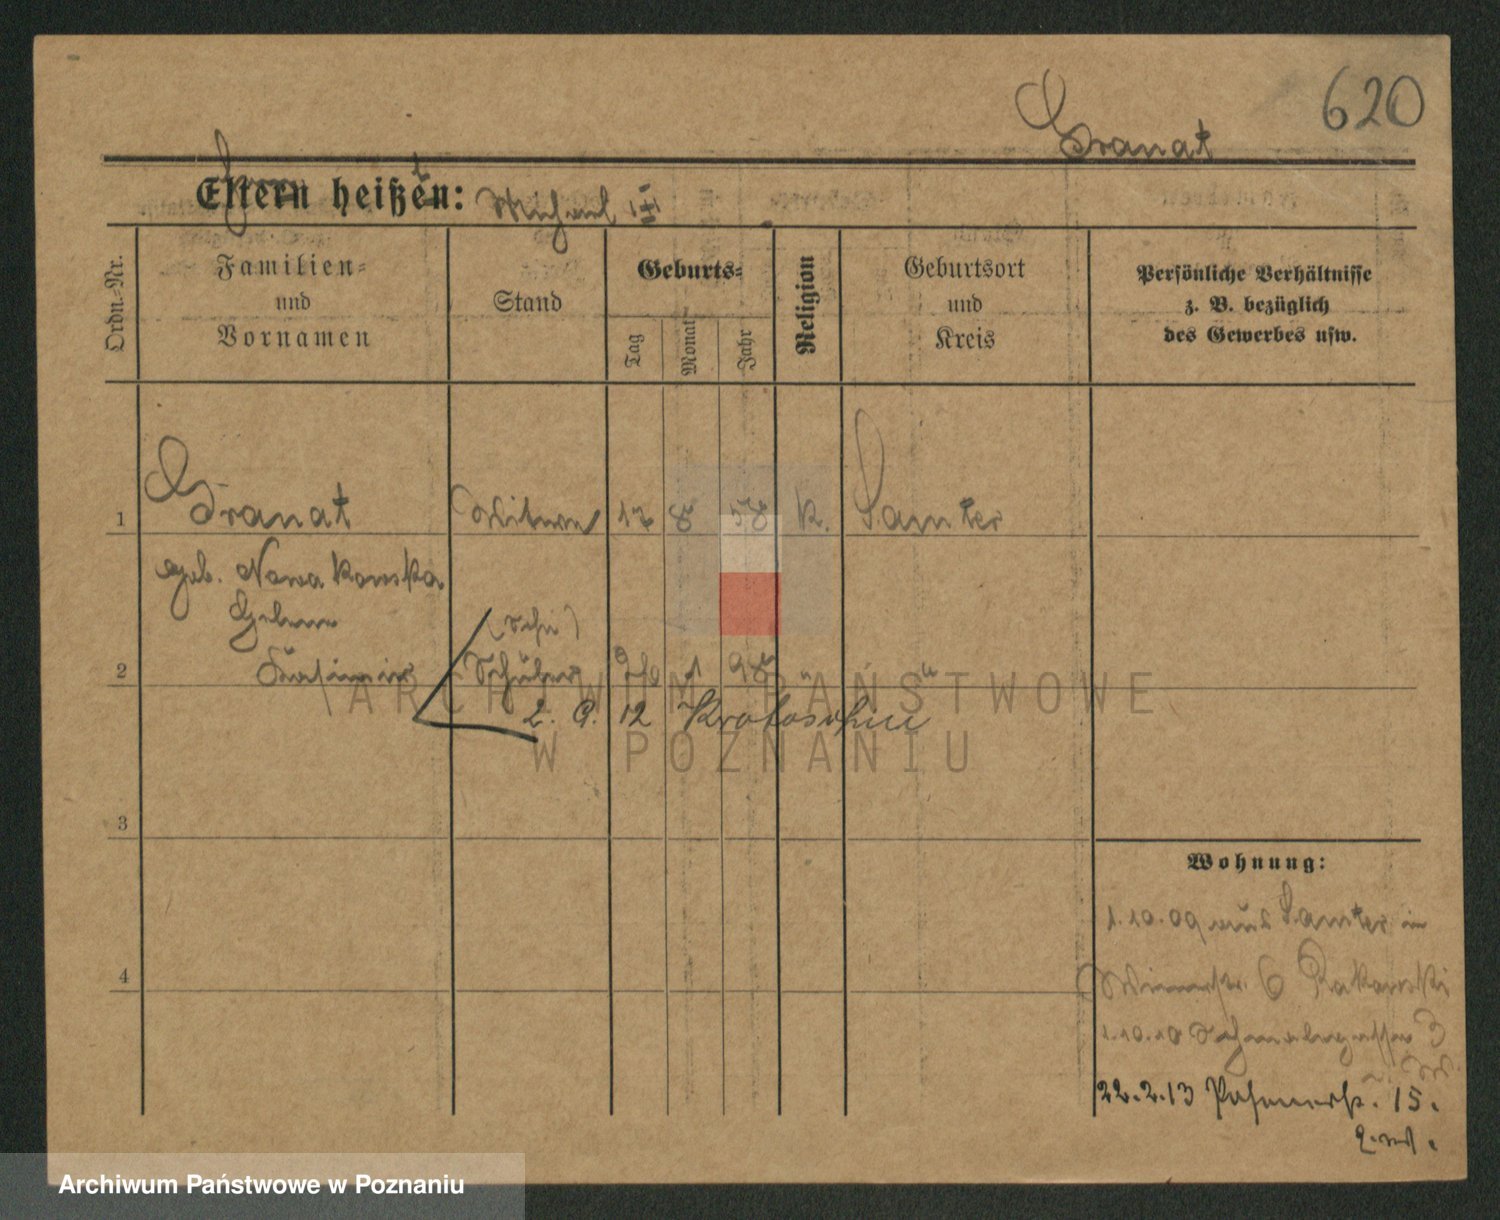 620
Granat
Eltern heißen: Michael III
Ordn.-Nr.
Familien-
und
Vornamen
Stand
Geburts-
Tag
Monat
Jahr
Religion
Geburtsort
und
Kreis
Persönliche Verhältnisse
z. B. bezüglich
des Gewerbes usw.
1 Granat Witwe 17 8 58 K. Samter
geb. Nowakowska
Helene
2 Kasimir Schüler 1 98 " "
2. 9. 12 Krotoschin
3
4
Wohnung:
1.10.09 aus Samter in
Wienerstr. 6
1.10.10 3
22.2.13 Posenerstr. 15.
ARCHIWUM PAŃSTWOWE
W POZNANIU
Archiwum Państwowe w Poznaniu